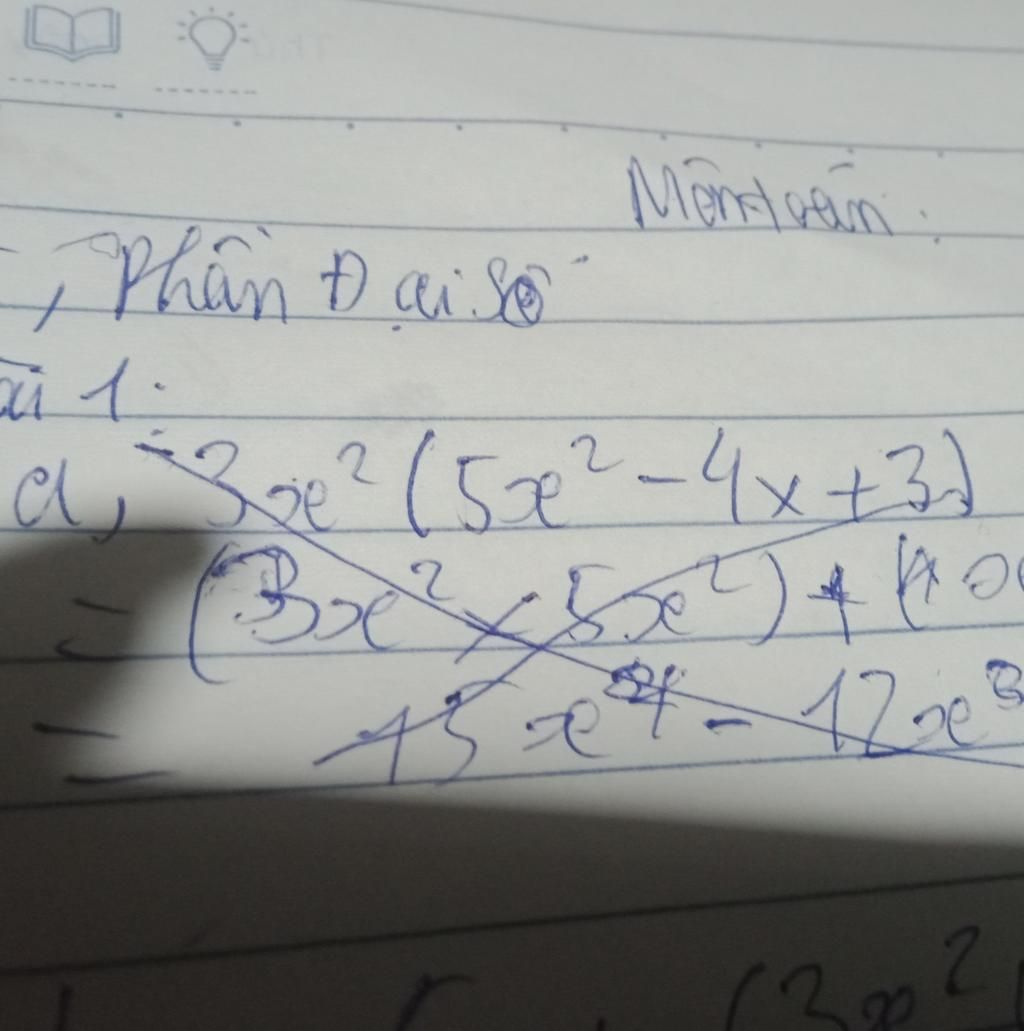 Môn toán
, Phần Đại số
ài 1:
a, 3x² (5x² - 4x + 3)
= (3x² × 5x²) + (
= 15x⁴ - 12x³
(3x²